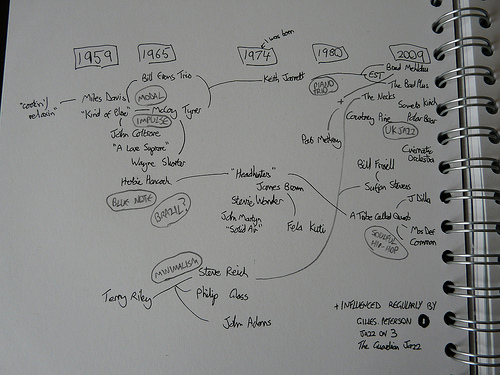 I was born
1959 1965 1974 1980 2009
Bill Evans Trio
Keith Jarrett
Brad Mehldau
EST
The Bad Plus
PIANO TRIO
"cookin'/
relaxin"
Miles Davis
"Kind of Blue"
MODAL
McCoy Tyner
IMPULSE
John Coltrane
"A Love Supreme"
Wayne Shorter
Herbie Hancock
BLUE NOTE
BRAZIL?
The Necks
Courtney Pine
Polar Bear
UK JAZZ
Cinematic
Orchestra
Pat Metheny
+
Bill Frisell
Sufjan Stevens
"Headhunters"
James Brown
Stevie Wonder
John Martyn
"Solid Air"
Fela Kuti
J Dilla
A Tribe Called Quest
Mos Def
Common
SOULFUL
HIP-HOP
MINIMALISM
Steve Reich
Terry Riley
Philip Glass
John Adams
+ INFLUENCED REGULARLY BY
GILLES PETERSON 1
JAZZ ON 3
The Guardian Jazz